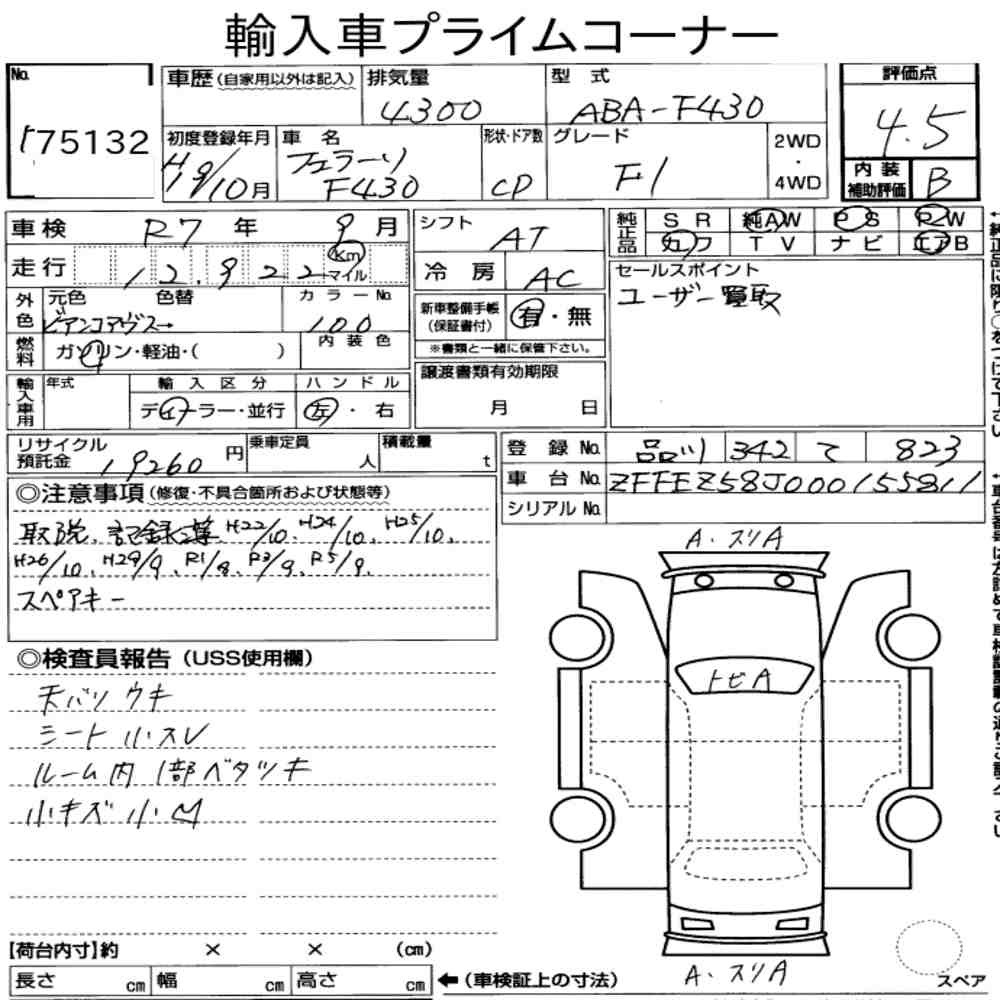 輸入車プライムコーナー
No. 175132
車歴(自家用以外は記入)
排気量 4300
型式 ABA-F430
評価点 4.5
初度登録年月 H19/10月
車名 フェラーリ F430
形状・ドア数 CP
グレード F1
2WD・4WD
内装補助評価 B
車検 R7年 9月
シフト AT
純正品 SR 純AW PS PW
カワ TV ナビ エアB
走行 12,922 Km マイル
冷房 AC
セールスポイント
ユーザー買取
外色 元色 色替 カラーNo.
ビアンコアヴス→ 100
新車整備手帳(保証書付) 有・無
※書類と一緒に保管下さい。
燃料 ガソリン・軽油・( )
内装色
譲渡書類有効期限
月 日
輸入車用 年式 輸入区分 ハンドル
ディーラー・並行 左・右
リサイクル預託金 19260円
乗車定員 人
積載量 t
登録No. 品川 342 て 823
車台No. ZFFEZ58J000155811
シリアルNo.
◎注意事項(修復・不具合箇所および状態等)
取説、記録簿 H22/10、H24/10、H25/10、
H26/10、H29/9、R1/8、R3/9、R5/9、
スペアキー
A・スリA
トビA
A・スリA
スペア
◎検査員報告(USS使用欄)
天バリ ウキ
シート小スレ
ルーム内 1部ベタツキ
小キズ小凹
【荷台内寸】約 × × (cm)
長さ cm 幅 cm 高さ cm ←(車検証上の寸法)